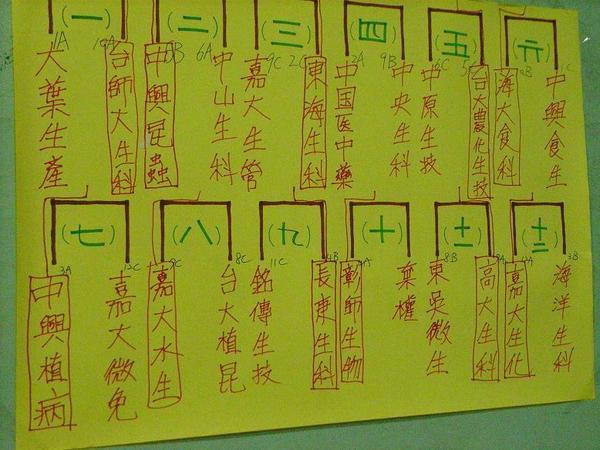 (一)
(二)
(三)
(四)
(五)
(六)
大葉生產
台師大生科
中興昆蟲
中山生科
嘉大生管
東海生科
中国医中藥
中央生科
中原生技
台大農化生技
海大食科
中興食生
(七)
(八)
(九)
(十)
(十一)
(十二)
中興植病
嘉大微免
嘉大水生
台大植昆
銘傳生技
長庚生科
彰師生物
棄權
東吳微生
高大生科
嘉大生化
海洋生科